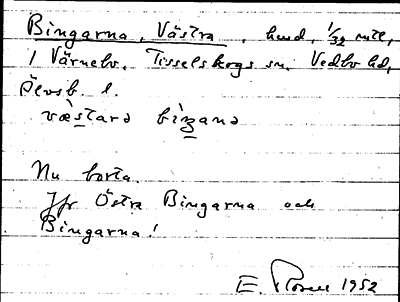 Bingarna, Västra, hmd, 1/32 mtl,
i Värnebo. Tisselskogs sn. Vedbo hd,
Älvsb. l.
væ̀starə bìŋanə
Nu borta.
Jfr Östra Bingarna och
Bingarna!
E. Rosell 1952